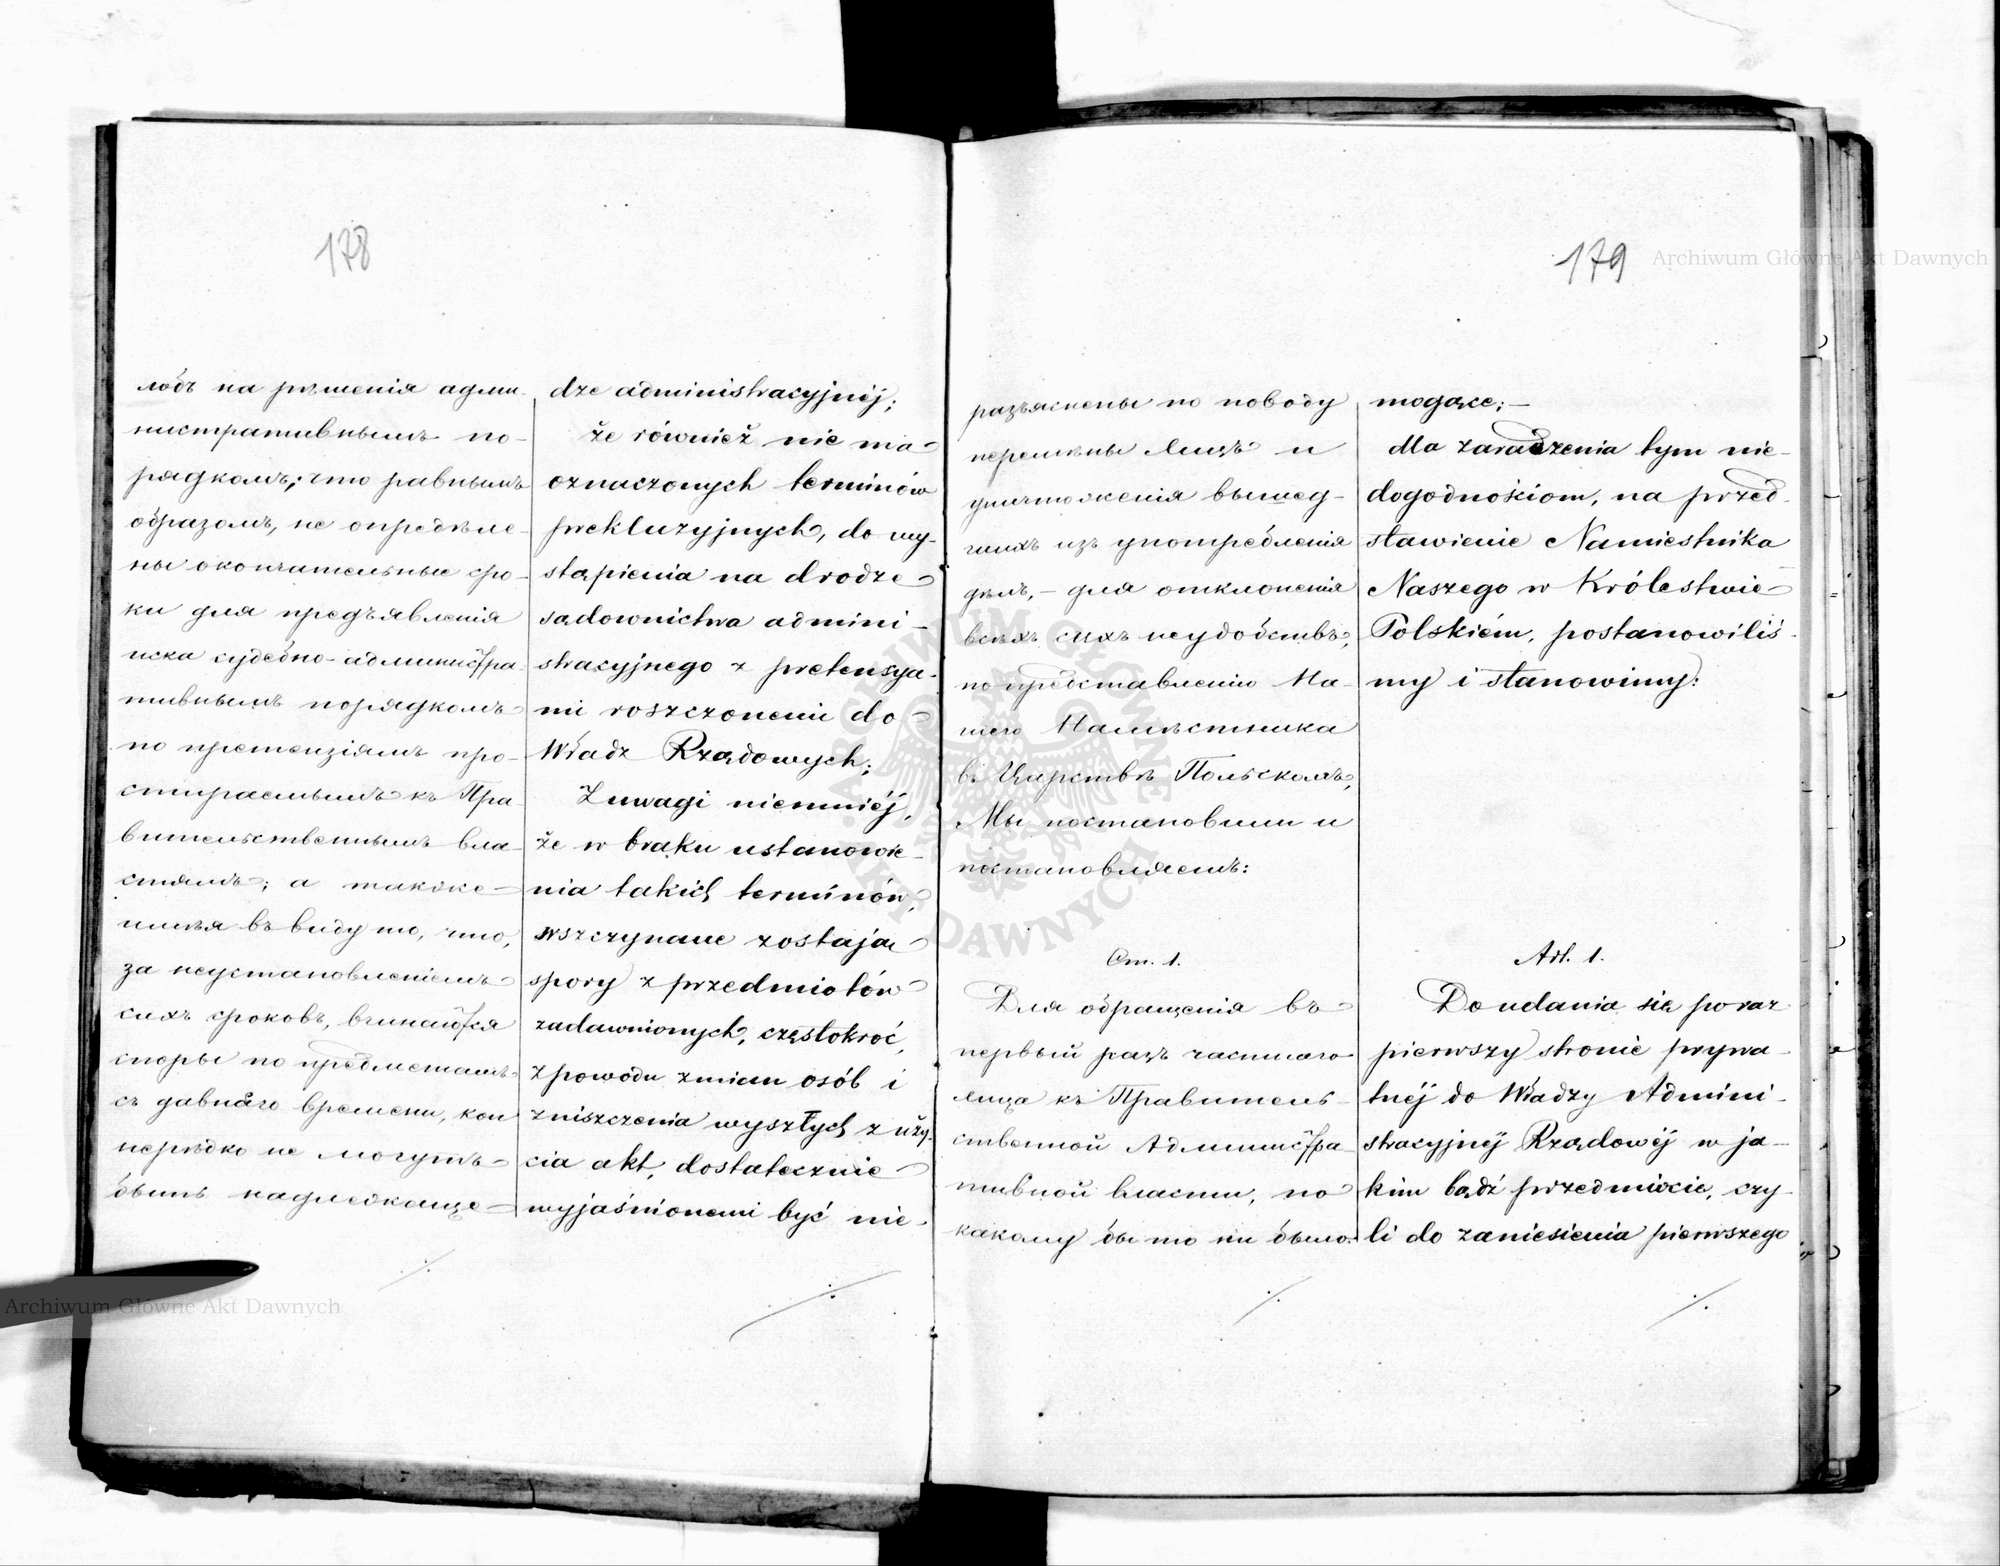 178
лобъ на рѣшенія адми-
нистративнымъ по-
рядкомъ; что равнымъ
образомъ, не опредѣле-
ны окончательные сро-
ки для предъявленія
иска судебно-администра-
тивнымъ порядкомъ
по претензіямъ про-
стираемымъ къ Пра-
вительственнымъ вла-
стямъ; а также
имѣя въ виду то, что,
за неустановленіемъ
сихъ сроковъ, вчинаются
споры по предметамъ
съ давняго времени, кои
нерѣдко не могутъ
быть надлежаще
dze administracyjnéj;
że również nie ma
oznaczonych terminów
prekluzyjnych, do wy-
stąpienia na drodze
sądownictwa admini-
stracyjnego z pretensya-
mi roszczonemi do
Władz Rządowych;
Z uwagi niemniéj,
że w braku ustanowie-
nia takich terminów,
wszczynane zostają
spory z przedmiotów
zadawnionych, częstokroć,
z powodu zmian osób i
zniszczenia wyszłych z uży-
cia akt, dostatecznie
wyjaśnionemi być nie
179
разъяснены по поводу
перемѣны лицъ и
уничтоженія вышед-
шихъ изъ употребленія
дѣлъ, – для отклоненія
всѣхъ сихъ неудобствъ,
по представленію На-
шего Намѣстника
въ Царствѣ Польскомъ,
Мы постановили и
постановляемъ:
Ст. 1.
Для обращенія въ
первый разъ частнаго
лица къ Правитель-
ственной Администра-
тивной власти, по
какому бы то ни было
mogące; –
dla zaradzenia tym nie-
dogodnościom, na przed-
stawienie Namiestnika
Naszego w Królestwie
Polskiém, postanowiliś-
my i stanowimy:
Art. 1.
Do udania się po raz
pierwszy stronie prywa-
tnéj do Władzy Admini-
stracyjnéj Rządowéj w ja-
kim bądź przedmiocie, czy-
li do zaniesienia pierwszego
Archiwum Główne Akt Dawnych
Archiwum Główne Akt Dawnych
ARCHIWUM GŁÓWNE AKT DAWNYCH